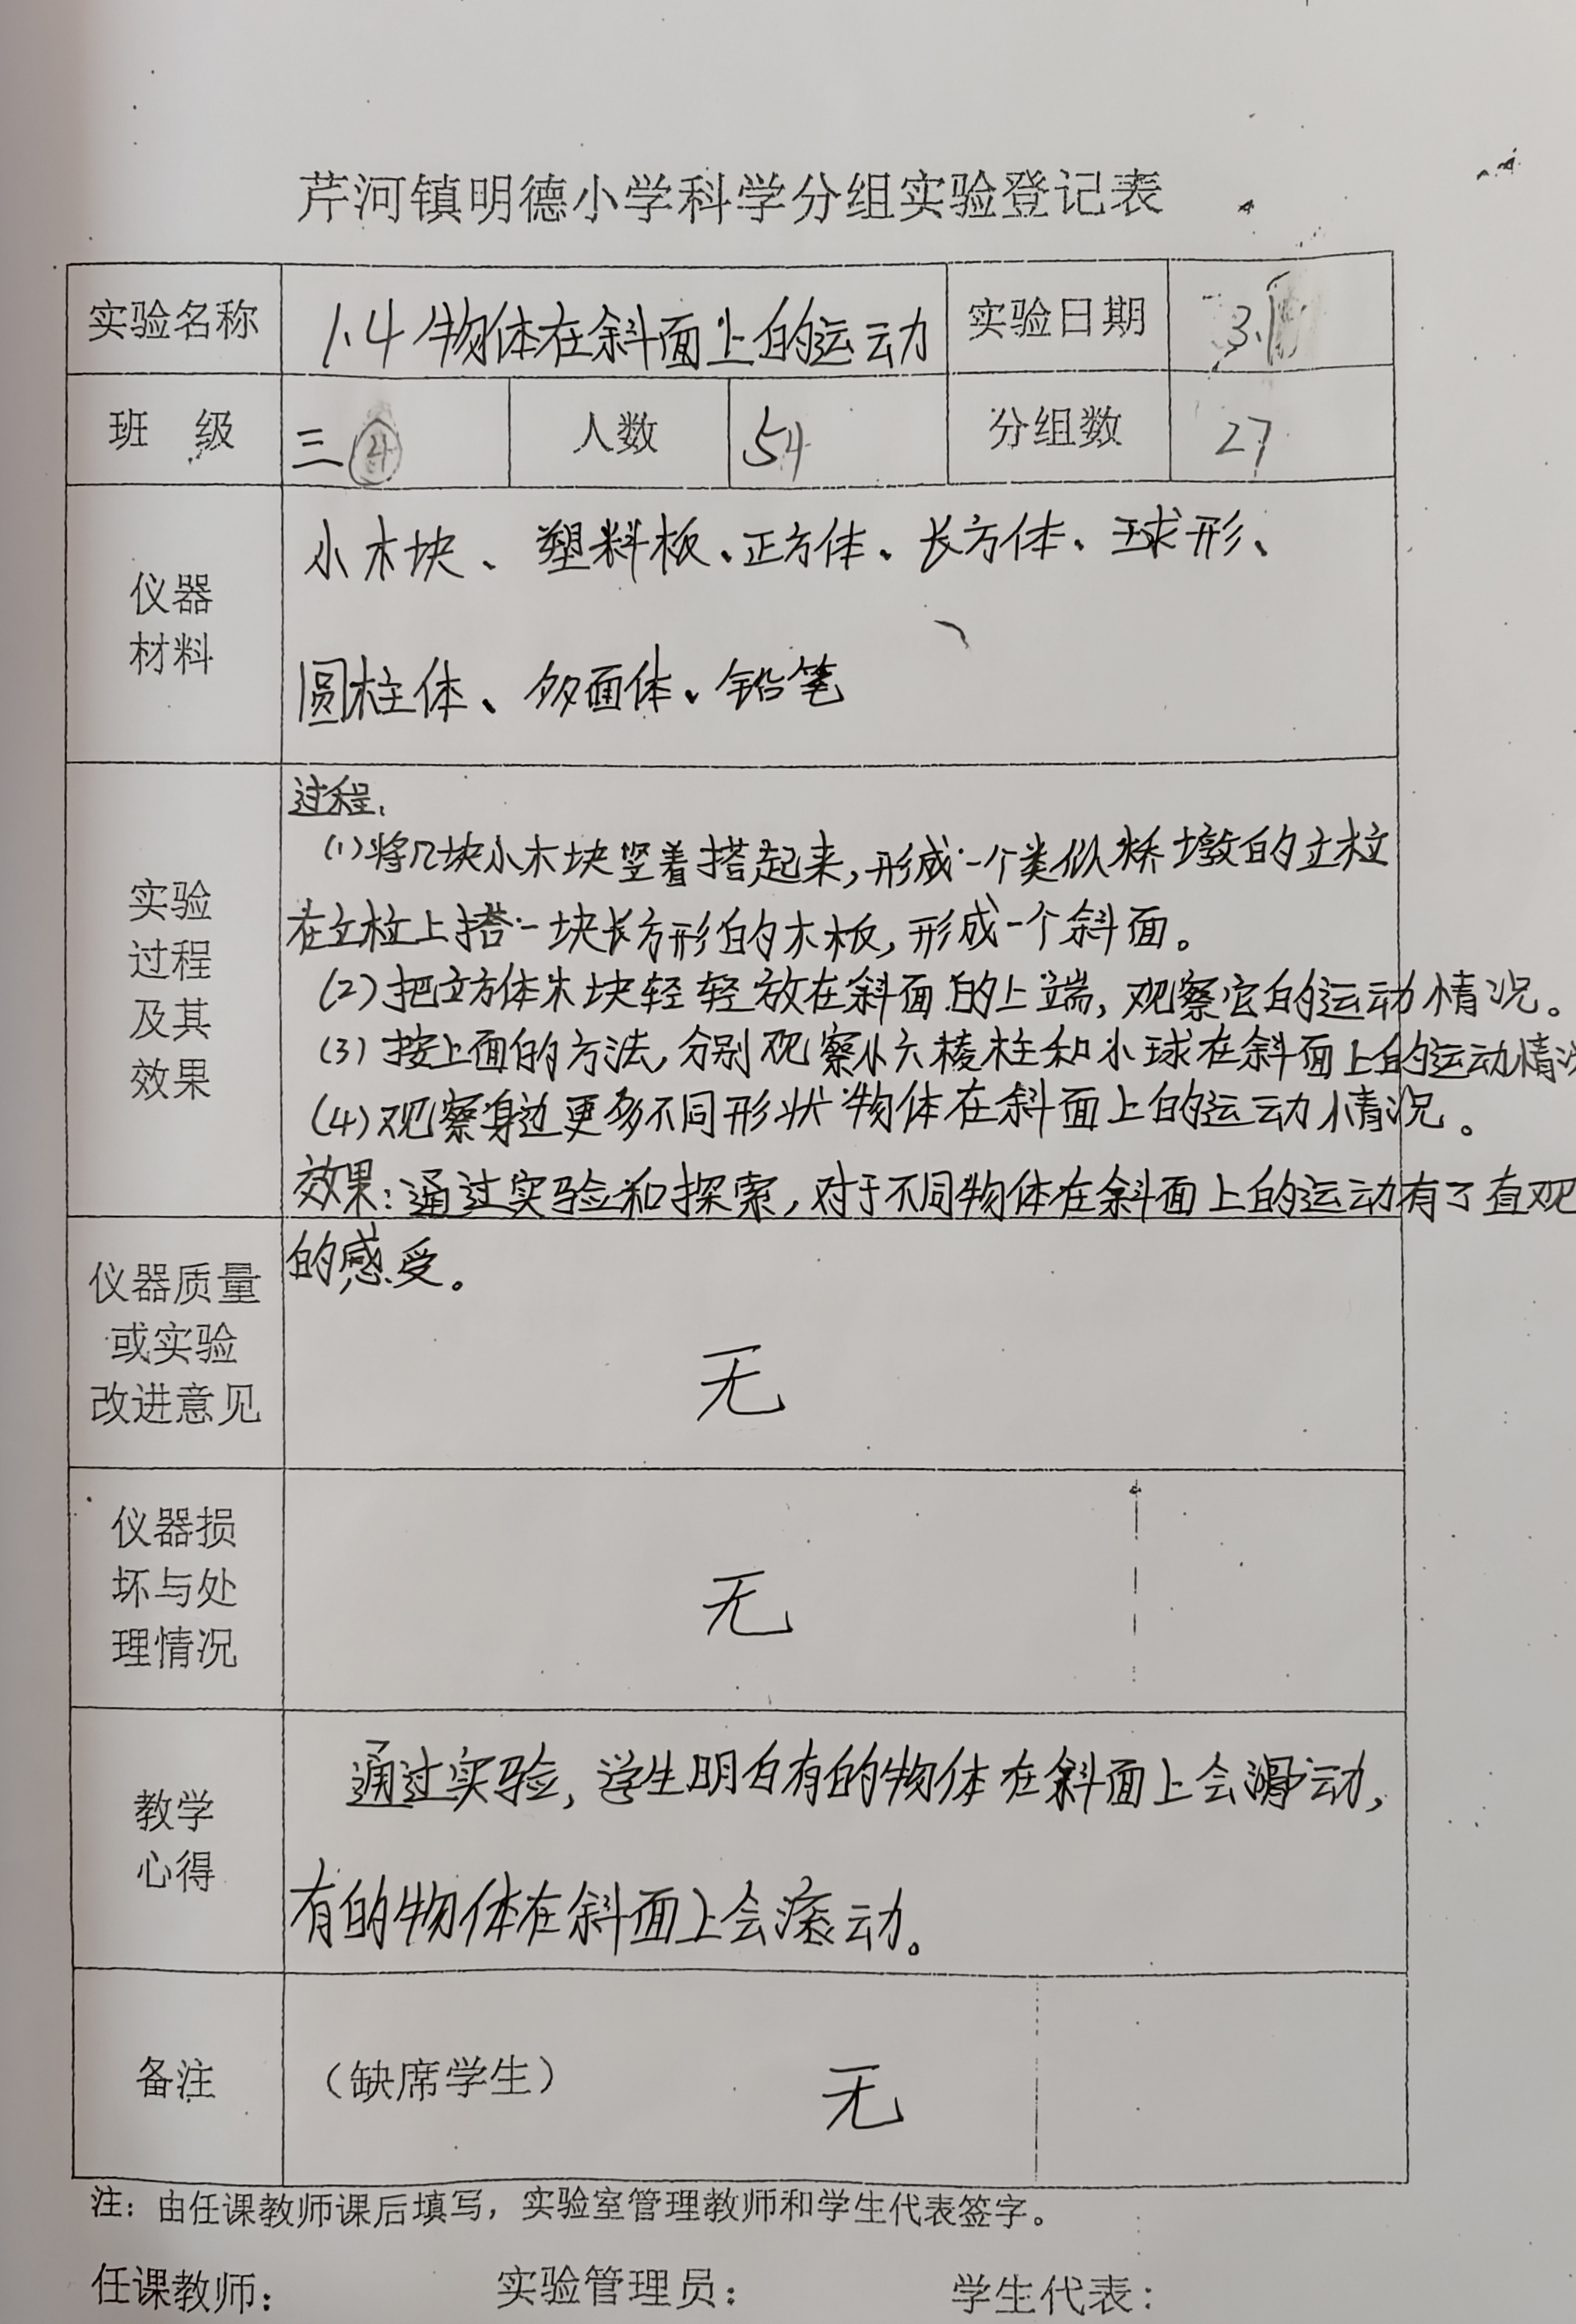 芹河镇明德小学科学分组实验登记表
实验名称 1.4 物体在斜面上的运动 实验日期
班 级 三④ 人数 54 分组数 27
仪器
材料
小木块、塑料板、正方体、长方体、球形、
圆柱体、多面体、铅笔
实验
过程
及其
效果
过程:
(1)将几块小木块竖着搭起来,形成一个类似桥墩的立柱
在立柱上搭一块长方形的木板,形成一个斜面。
(2)把立方体木块轻轻放在斜面的上端,观察它的运动情况。
(3)按上面的方法,分别观察小六棱柱和小球在斜面上的运动情况
(4)观察身边更多不同形状物体在斜面上的运动情况。
效果:通过实验和探索,对于不同物体在斜面上的运动有了直观
的感受。
仪器质量
或实验
改进意见
无
仪器损
坏与处
理情况
无
教学
心得
通过实验,学生明白有的物体在斜面上会滑动,
有的物体在斜面上会滚动。
备注 (缺席学生) 无
注:由任课教师课后填写,实验室管理教师和学生代表签字。
任课教师: 实验管理员: 学生代表: